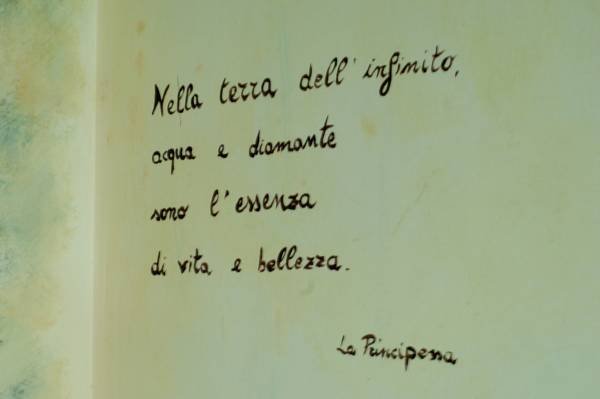 Nella terra dell' infinito,
acqua e diamante
sono l'essenza
di vita e bellezza.
La Principessa